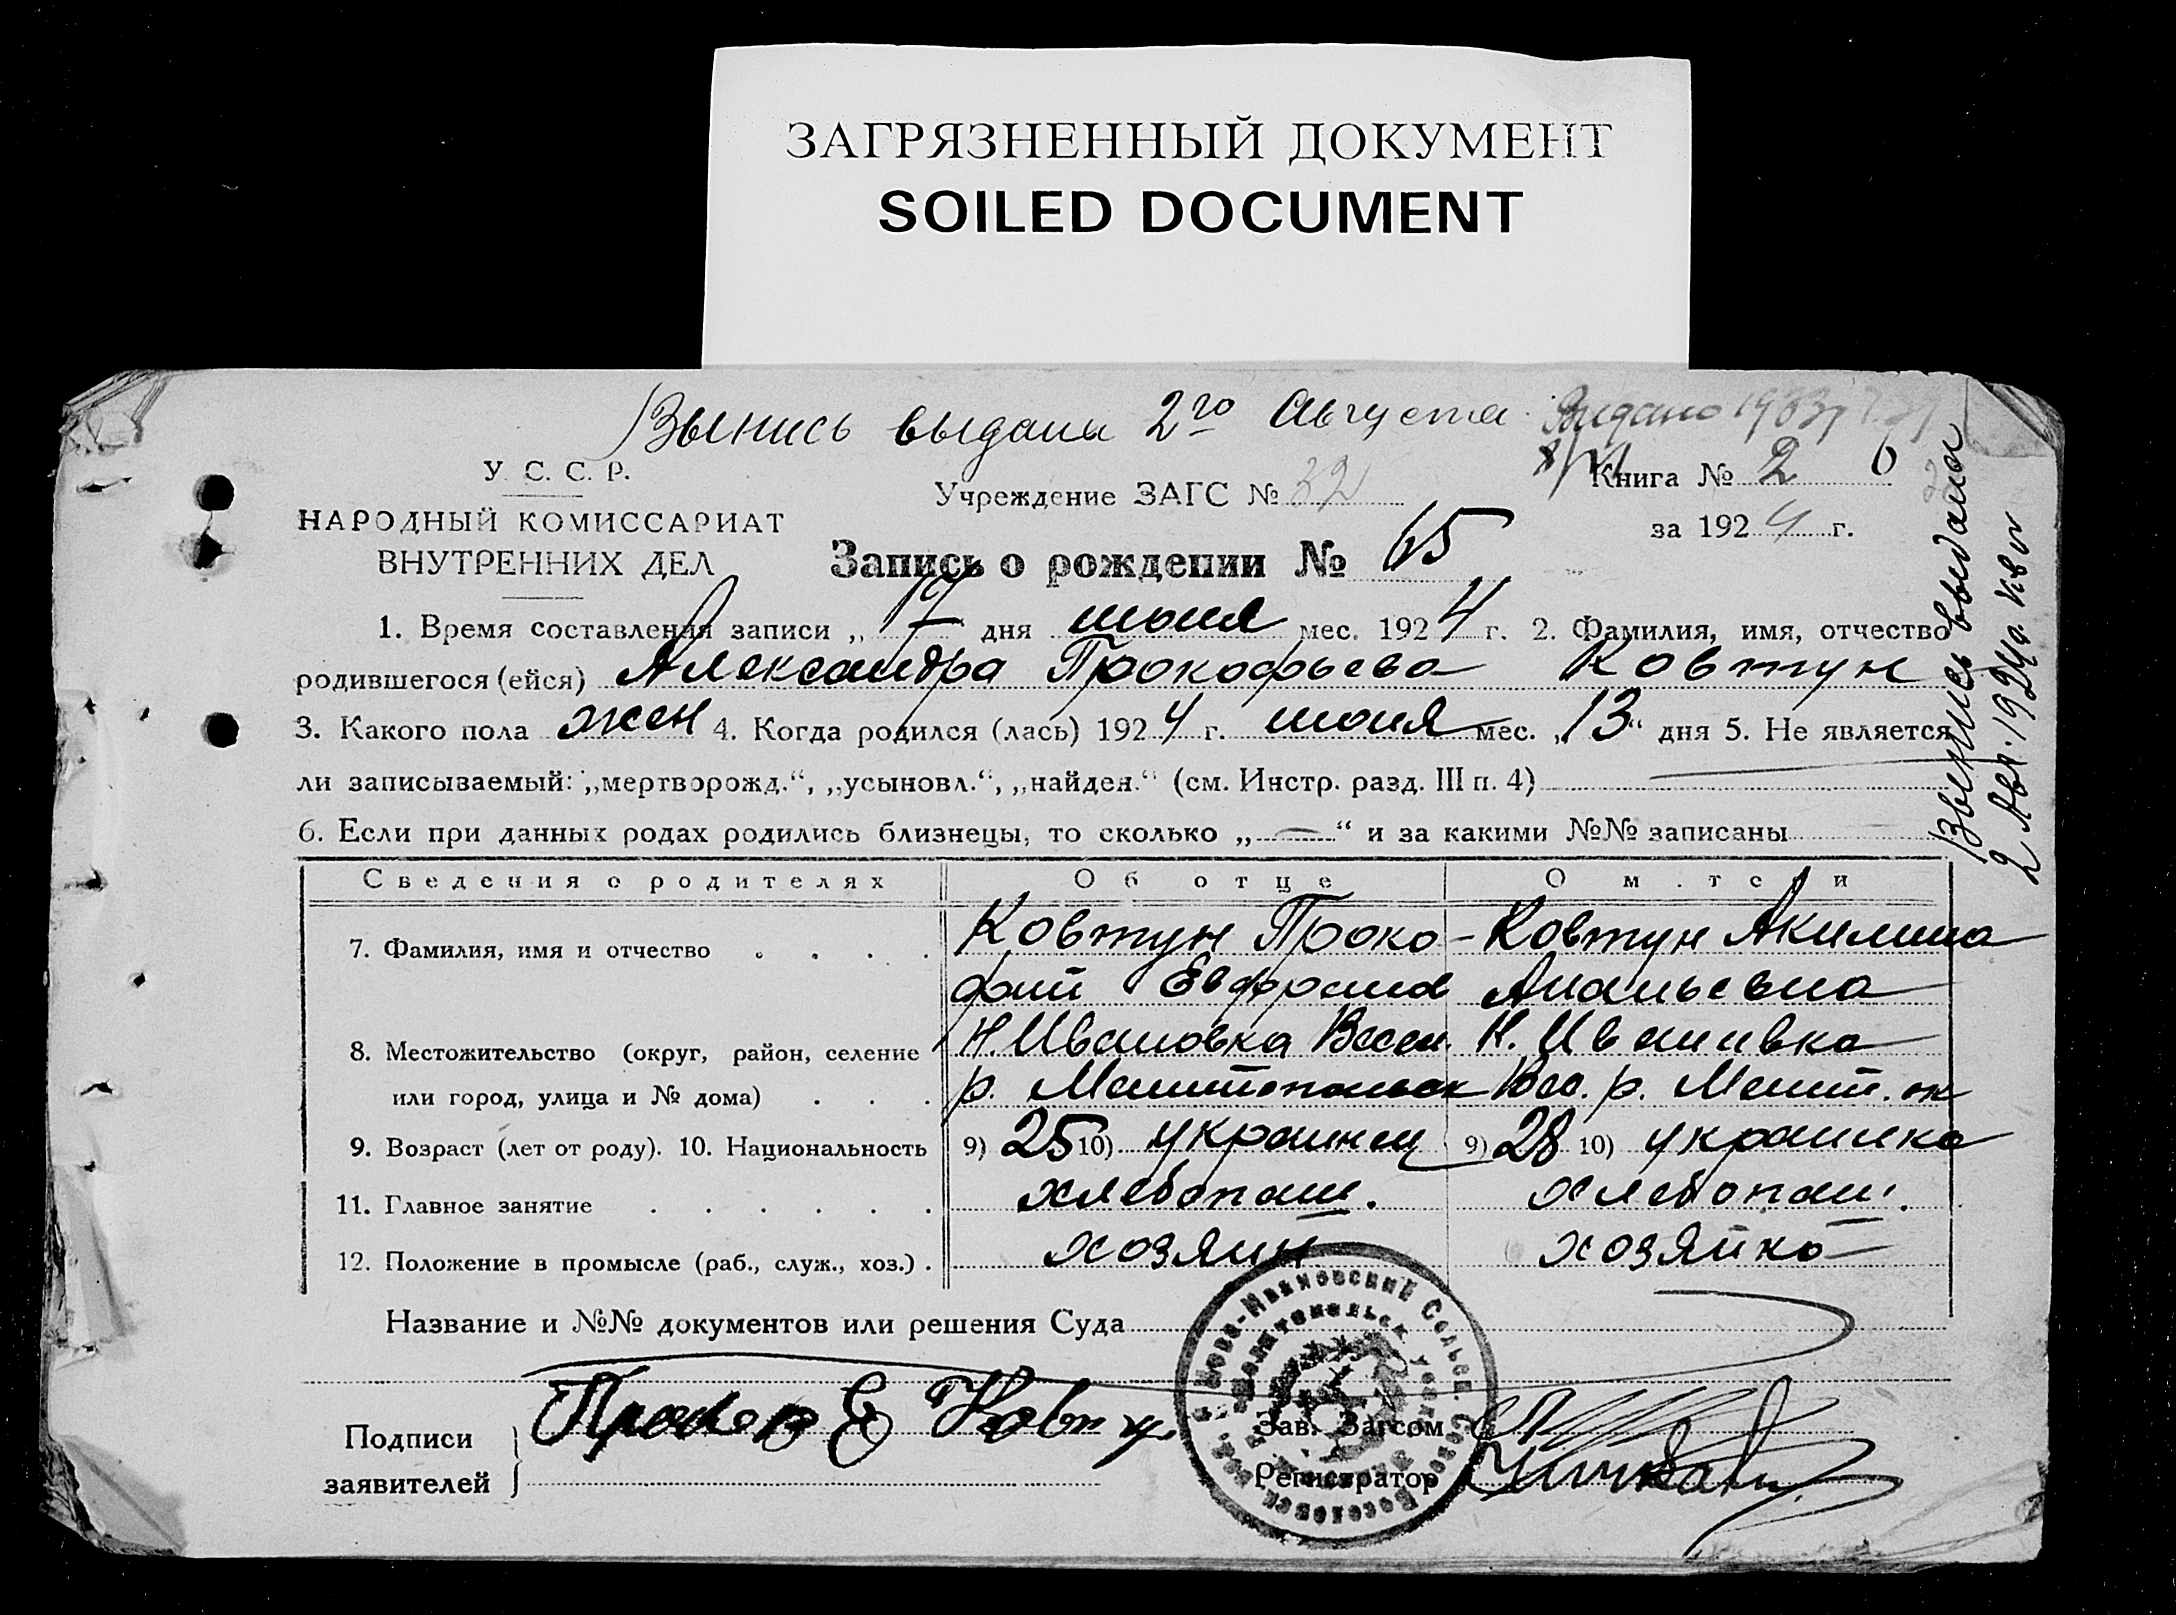 ЗАГРЯЗНЕННЫЙ ДОКУМЕНТ
SOILED DOCUMENT
Выпись выдана 2го Августа Видано 1933
У. С. С. Р.
НАРОДНЫЙ КОМИССАРИАТ
ВНУТРЕННИХ ДЕЛ
Учреждение ЗАГС № 32
Книга № 2
за 1924 г.
Запись о рождении № 65
1. Время составления записи „17“ дня июня мес. 1924 г. 2. Фамилия, имя, отчество
родившегося (ейся) Александра Прокофьева Ковтун
3. Какого пола жен 4. Когда родился (лась) 1924 г. июня мес. „13“ дня 5. Не является
ли записываемый: „мертворожд.“, „усыновл.“, „найден.“ (см. Инстр. разд. III п. 4)
6. Если при данных родах родились близнецы, то сколько „—“ и за какими №№ записаны
Сведения о родителях Об отце О матери
7. Фамилия, имя и отчество . . . . Ковтун Проко- Ковтун Акилина
фий Евфраив Ананьевна
8. Местожительство (округ, район, селение Н. Ивановка Весел. Н. Ивановка
или город, улица и № дома) . . . р. Мелитопольск Вес. р. Мелит. ок
9. Возраст (лет от роду). 10. Национальность 9) 25 10) украинец 9) 28 10) украинка
11. Главное занятие . . . . . . хлебопаш. хлебопаш.
12. Положение в промысле (раб., служ., хоз.) . хозяин хозяйка
Название и №№ документов или решения Суда
Подписи
заявителей
Е Ковтун
Зав. Загсом
Регистратор
Ново-Ивановский Сельск. Совет
Мелитопольск
Выпись выдана
2 Авг. 1924 г.